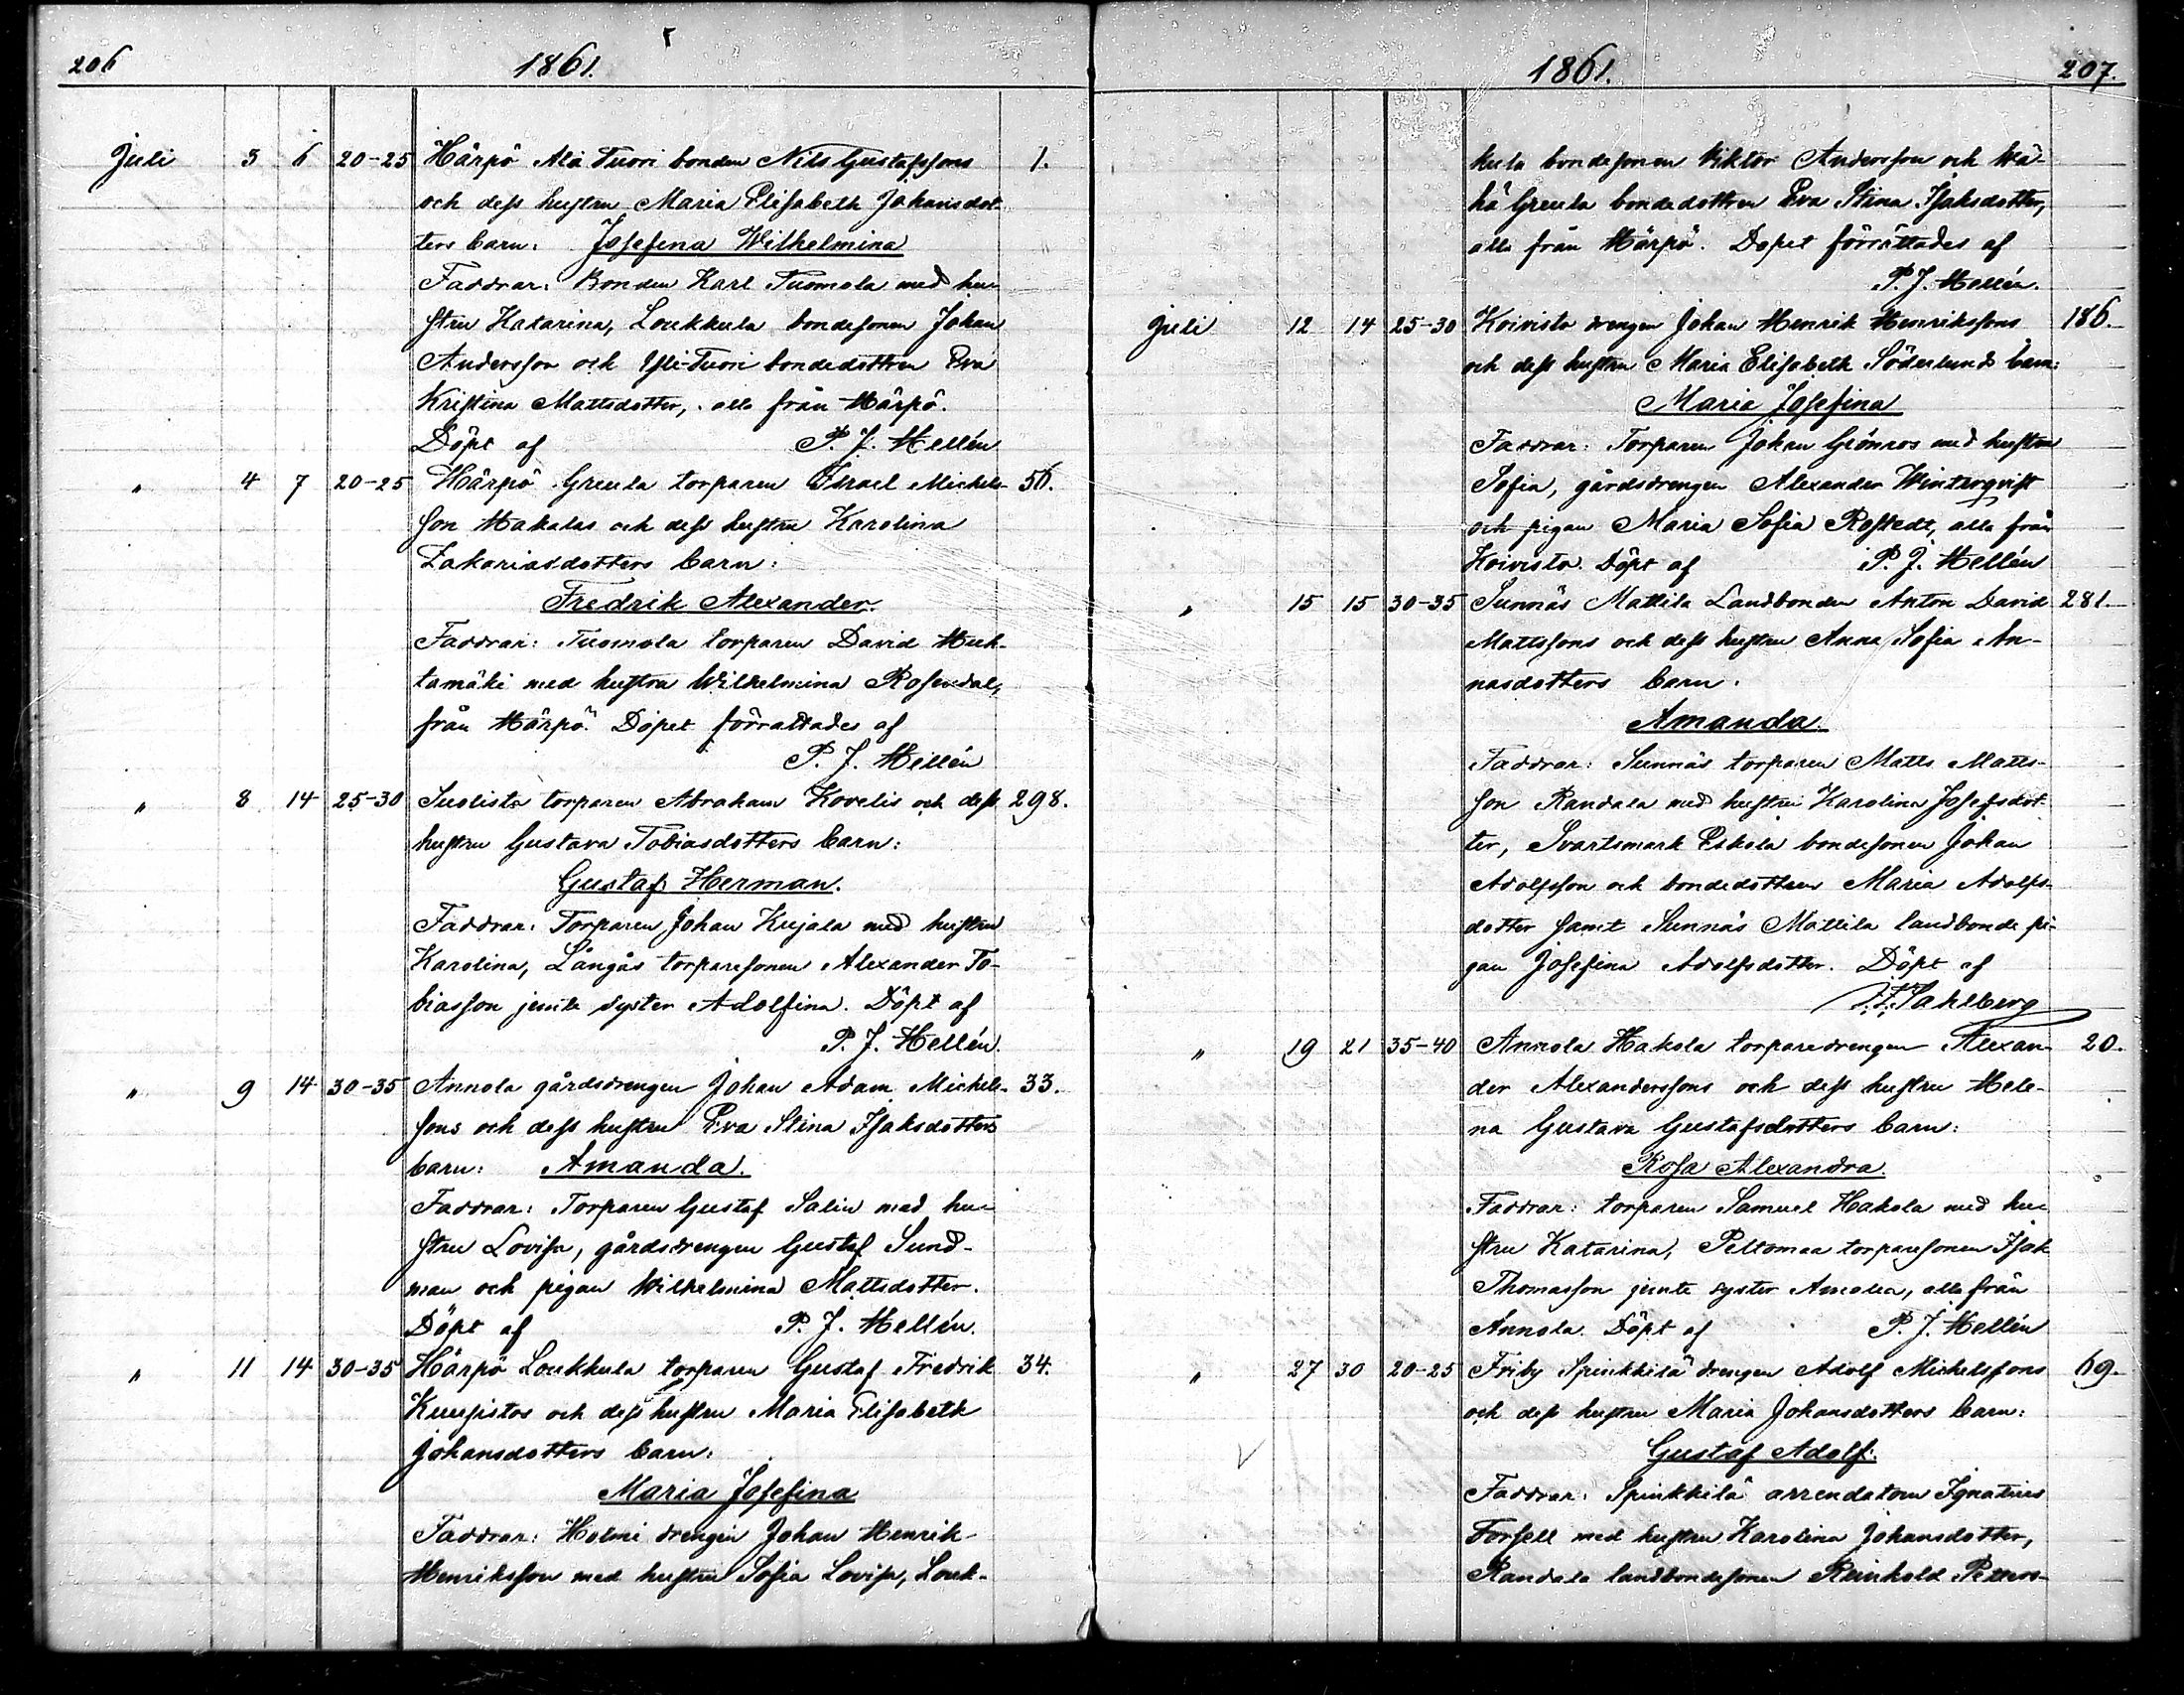 206 1861.
Juli 3 6 20-25 Härpö Ala Tuori bonden Nils Gustafssons 1.
och dess hustru Maria Elisabeth Johansdot-
ters barn: Josefina Wilhelmina
Faddrar: Bonden Karl Tuomola med hu-
stru Katarina, Loukkula bondesonen Johan
Andersson och Yli-Tuori bondedottren Eva
Kristina Mattsdotter, alla från Härpö.
Döpt af P. J. Hellén
" 4 7 20-25 Härpö Greula torparen Israel Michels- 56.
son Hakalas och dess hustru Karolina
Zakariasdotters barn:
Fredrik Alexander.
Faddrar: Tuomola torparen David Huh-
tamäki med hustru Wilhelmina Rosendal,
från Härpö. Döpet förrättades af
P. J. Hellén
" 8 14 25-30 Suolisto torparen Abraham Kovelis och dess 298.
hustru Gustava Tobiasdotters barn:
Gustaf Herman.
Faddrar: Torparen Johan Kujala med hustru
Karolina, Långås torparesonen Alexander To-
biasson jemte syster Adolfina. Döpt af
P. J. Hellén.
" 9 14 30-35 Annola gårdsdrengen Johan Adam Michels- 33.
sons och dess hustru Eva Stina Isaksdotters
barn: Amanda.
Faddrar: Torparen Gustaf Salin med hu-
stru Lovisa, gårdsdrengen Gustaf Sund-
man och pigan Wilhelmina Mattsdotter.
Döpt af P. J. Hellén.
" 11 14 30-35 Härpö Loukkula torparen Gustaf Fredrik 34.
Kuusistos och dess hustru Maria Elisabeth
Johansdotters barn:
Maria Josefina
Faddrar: Holmi drengen Johan Henrik
Henriksson med hustru Sofia Lovisa, Louk-
1861. 207.
kula bondesonen Viktor Andersson och Wä-
hä Greula bondedottren Eva Stina Isaksdotter,
alla från Härpö. Dopet förrättades af
P. J. Hellén.
Juli 12 14 25-30 Koivisto drengen Johan Henrik Henrikssons 186.
och dess hustru Maria Elisabeth Söderlunds barn:
Maria Josefina
Faddrar: Torparen Johan Grönroos med hustru
Sofia, gårdsdrengen Alexander Winterqvist
och pigan Maria Sofia Rostedt, alla från
Koivisto. Döpt af P. J. Hellén
" 15 15 30-35 Sunnäs Mattila Landbonden Anton David 281.
Mattssons och dess hustru Anna Sofia An-
nasdotters barn:
Amanda.
Faddrar: Sunnäs torparen Matts Matts-
son Randala med hustru Karolina Josefsdot-
ter, Svartsmark Eskola bondesonen Johan
Adolfsson och bondedottren Maria Adolfs-
dotter samt Sunnäs Mattila landbonde pi-
gan Josefina Adolfsdotter. Döpt af
Sahlberg
" 19 21 35-40 Annola Hakola torparedrengen Alexan- 20.
der Alexanderssons och dess hustru Hele-
na Gustava Gustafsdotters barn:
Rosa Alexandra.
Faddrar: torparen Samuel Hakola med hu-
stru Katarina, Peltomaa torparesonen Isak
Thomasson jemte syster Amalia, alla från
Annola. Döpt af P. J. Hellén
" 27 30 20-25 Friby Spinkkilä drengen Adolf Michelssons 69.
och dess hustru Maria Johansdotters barn:
Gustaf Adolf.
Faddrar: Spinkkilä arrendatorn Ignatius
Forsell med hustru Karolina Johansdotter,
Randala landbondesonen Reinhold Petters-